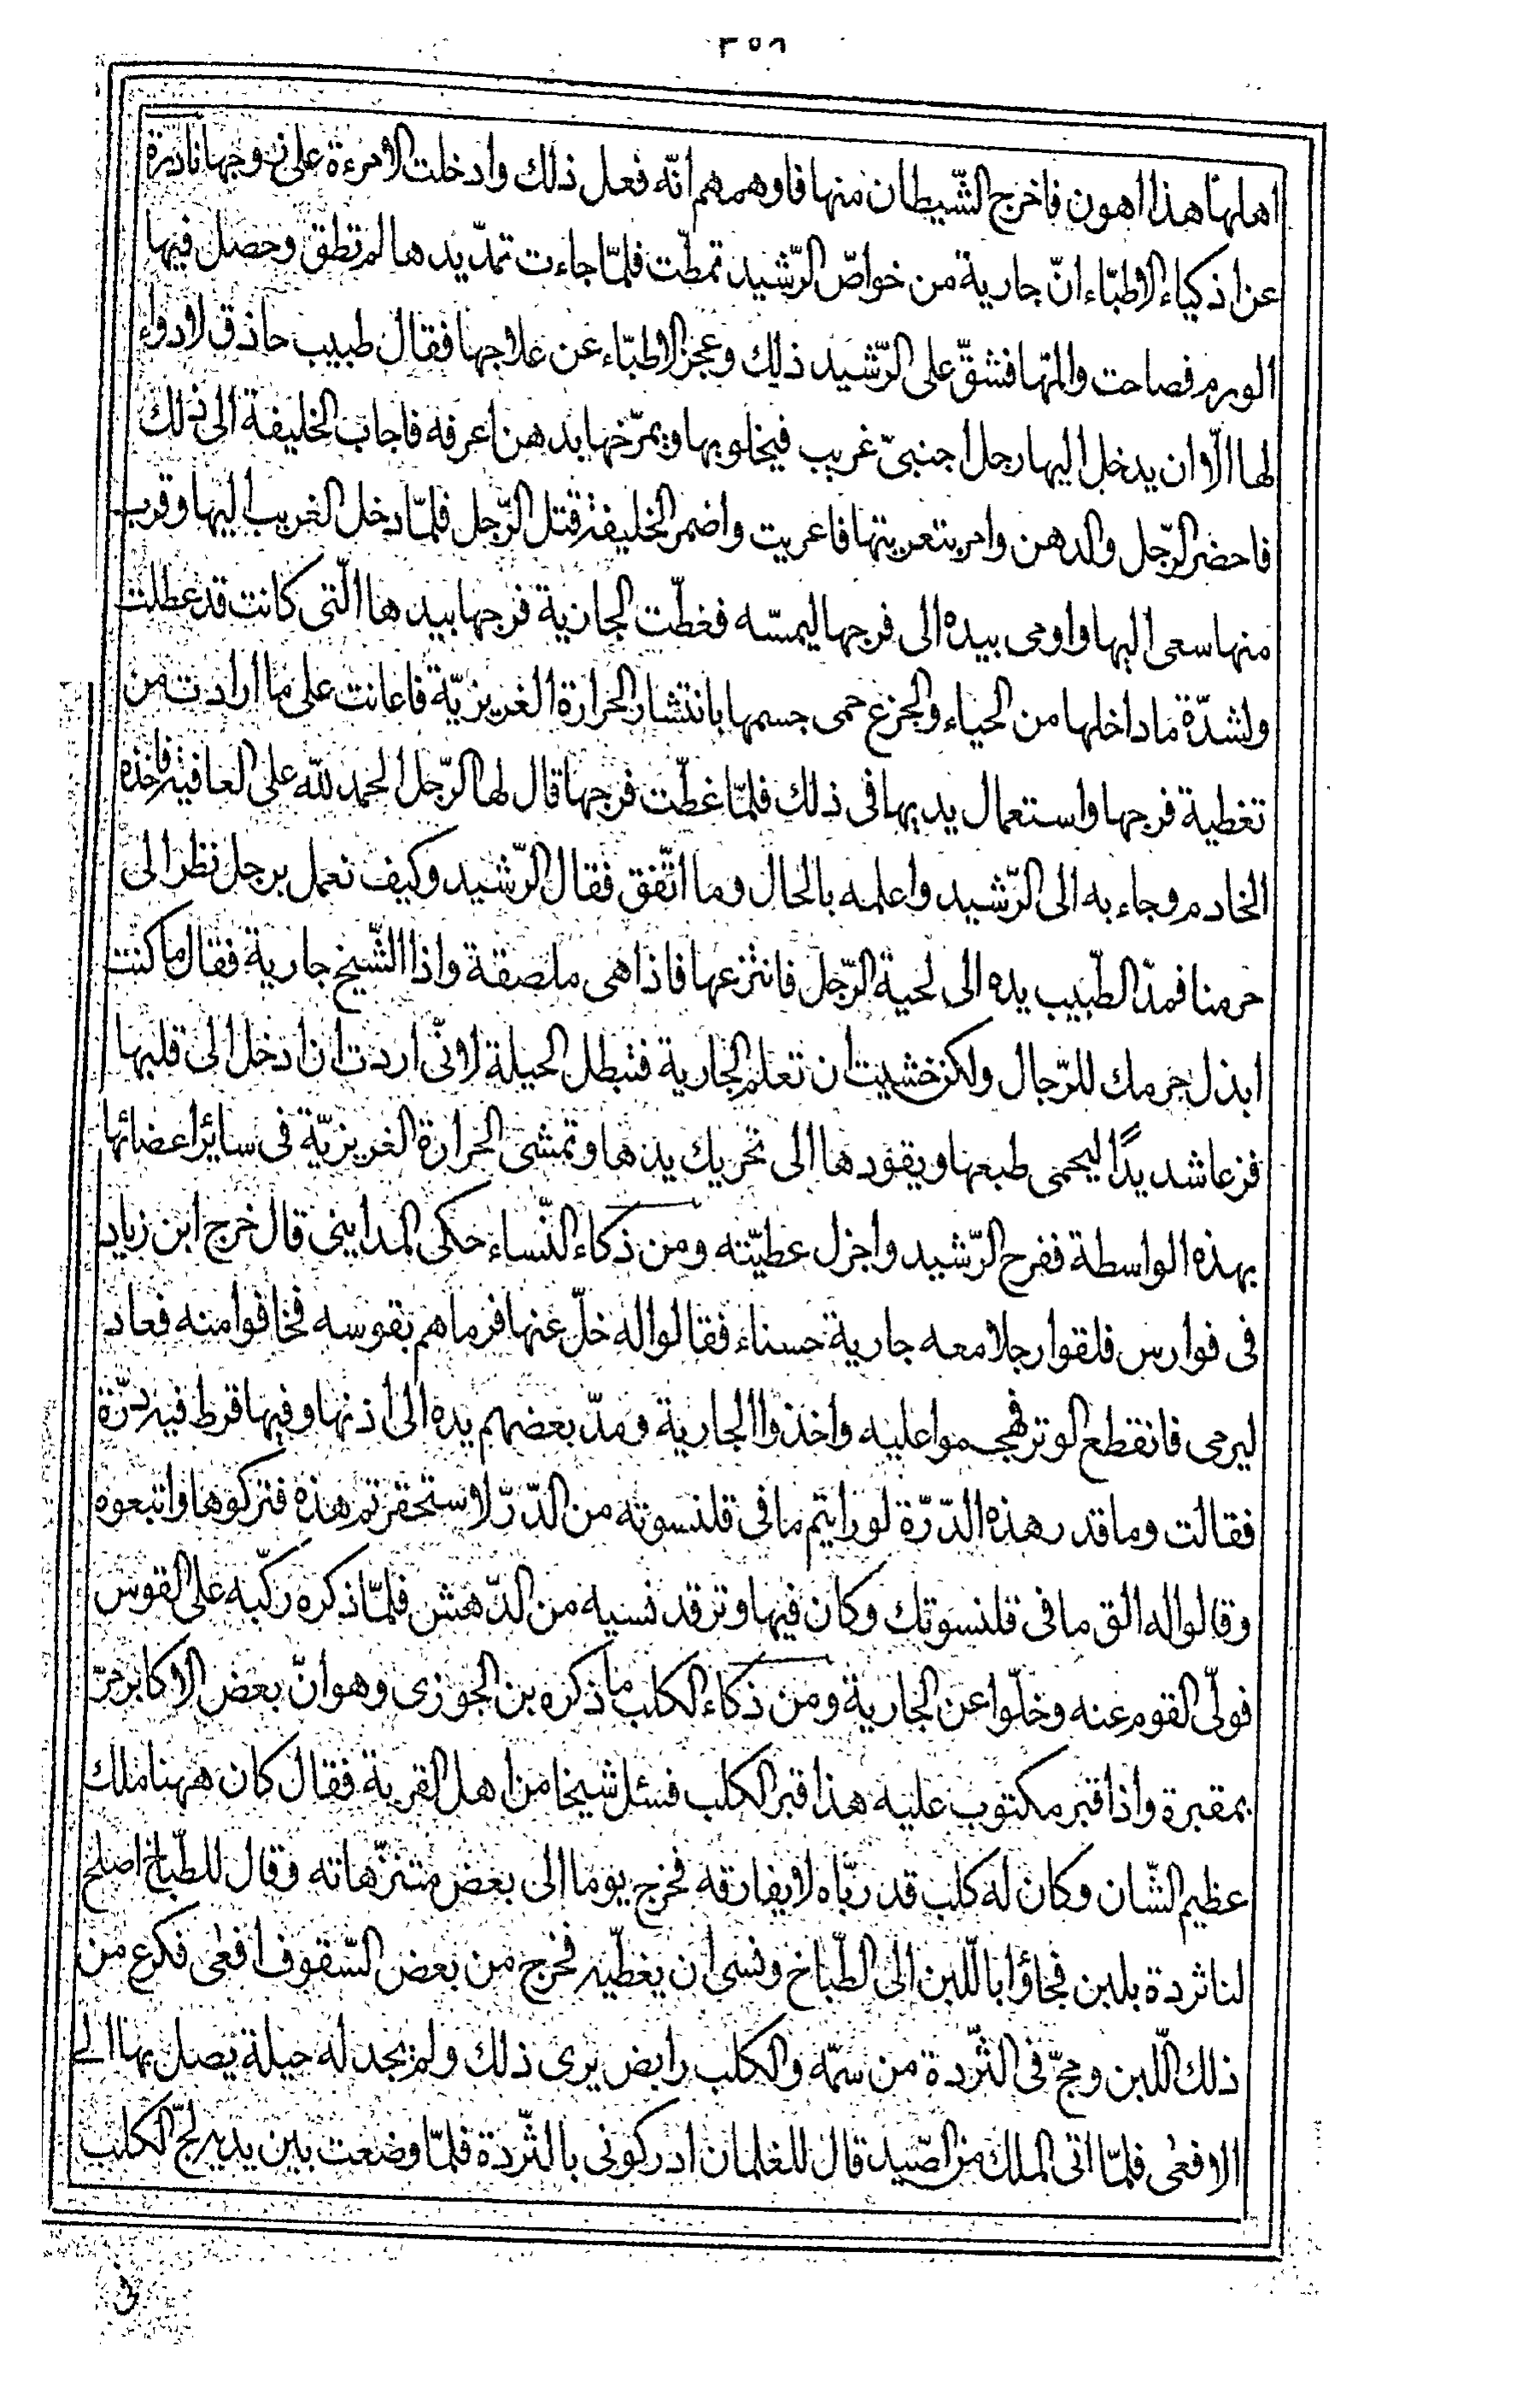 ٣٥٨
اهلها هذا اهون فاخرج الشّيطان منها فاوهمهم انّه فعل ذلك وادخلت الامرءة على زوجها نادرة
عن اذكياء الاطبّاء انّ جارية من خواصّ الرّشيد تمطّت فلمّا جاءت تمدّ يدها لم تطق وحصل فيها
الورم فصاحت والمّها فشقّ على الرّشيد ذلك وعجز الاطبّاء عن علاجها فقال طبيب حاذق لا دواء
لها الّا ان يدخل اليها رجل اجنبىّ غريب فيخلو بها ويمرّخها بدهن اعرفه فاجاب الخليفة الى ذلك
فاحضر الرّجل والدهن وامر بتعريتها فاعريت واضمر الخليفة قتل الرّجل فلمّا دخل الغريب اليها وقرب
منها سعى اليها واومى بيده الى فرجها ليمسّه فغطّت الجارية فرجها بيدها الّتى كانت قد عطلت
ولشدّة ما داخلها من الحياء والجزع حمى جسمها بانتشار الحرارة الغريزيّة فاعانت على ما ارادت من
تغطية فرجها واستعمال يديها فى ذلك فلمّا غطّت فرجها قال لها الرّجل الحمد للّه على العافية فاخذه
الخادم وجاء به الى الرّشيد واعلمه بالحال وما اتّفق فقال الرّشيد وكيف نعمل برجل نظر الى
حرمنا فمدّ الطّبيب يده الى لحية الرّجل فانتزعها فاذا هى ملصقة واذا الشّيخ جارية فقال ما كنت
ابذل حرمك للرّجال ولكن خشيت ان تعلم الجارية فتبطل الحيلة لانّى اردت ان ادخل الى قلبها
فزعا شديدًا ليحمى طبعها ويقودها الى تحريك يدها وتمشى الحرارة الغريزيّة فى سائر اعضائها
بهذه الواسطة ففرح الرّشيد واجزل عطيّته ومن ذكاء النّساء حكى المداينى قال خرج ابن زياد
فى فوارس فلقوا رجلا معه جارية حسناء فقالوا له خلّ عنها فرماهم بقوسه فخافوا منه فعاد
ليرمى فانقطع الوتر فهجموا عليه واخذوا الجارية ومدّ بعضهم يده الى اذنها وفيها قرط فيه درّة
فقالت وما قدر هذه الدّرّة لو رايتم ما فى قلنسوته من الدّرّ لاستحقرتم هذه فتركوها واتبعوه
وقالوا له الق ما فى قلنسوتك وكان فيها وتر قد نسيه من الدّهش فلمّا ذكره ركّبه على القوس
فولّى القوم عنه وخلّوا عن الجارية ومن ذكاء الكلب ما ذكره بن الجوزى وهو انّ بعض الاكابر مرّ
بمقبرة واذا قبر مكتوب عليه هذا قبر الكلب فسئل شيخا من اهل القرية فقال كان ههنا ملك
عظيم الشّان وكان له كلب قد ربّاه لا يفارقه فخرج يوما الى بعض متنزّهاته وقال للطّباخ اصلح
لنا ثردة بلبن فجاؤا باللّبن الى الطّباخ ونسى ان يغطّيه فخرج من بعض السّقوف افعى فكرع من
ذلك اللّبن ومجّ فى الثّردة من سمّه والكلب رابض يرى ذلك ولم يجد له حيلة يصل بها الى
الافعى فلمّا اتى الملك من الصّيد قال للغلمان ادركونى بالثّردة فلمّا وضعت بين يديه لجّ الكلب
فى